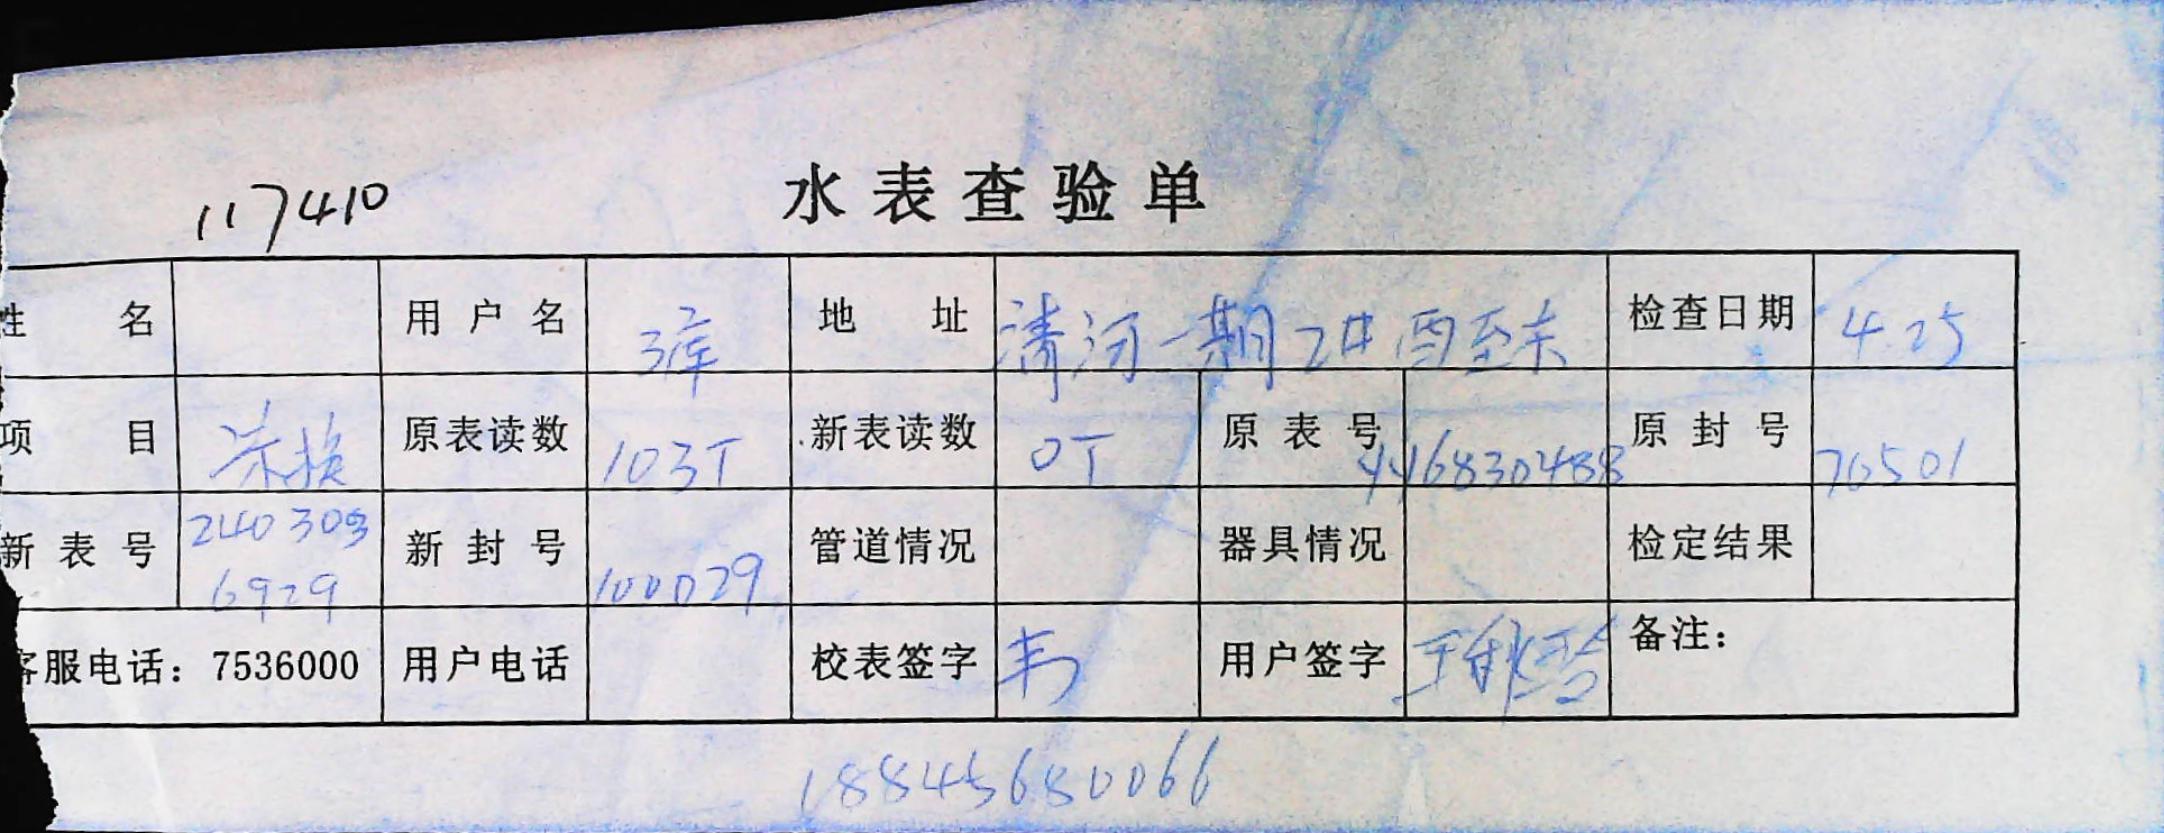 水表查验单
117410
姓 名 用户名 3库 地 址 清河一期2# 西至东 检查日期 4.25
项 目 换 原表读数 103T 新表读数 0T 原表号 416830488 原封号 70501
新表号 240303 6929 新封号 100029 管道情况 器具情况 检定结果
客服电话：7536000 用户电话 校表签字 韦 用户签字 备注：
18845680066